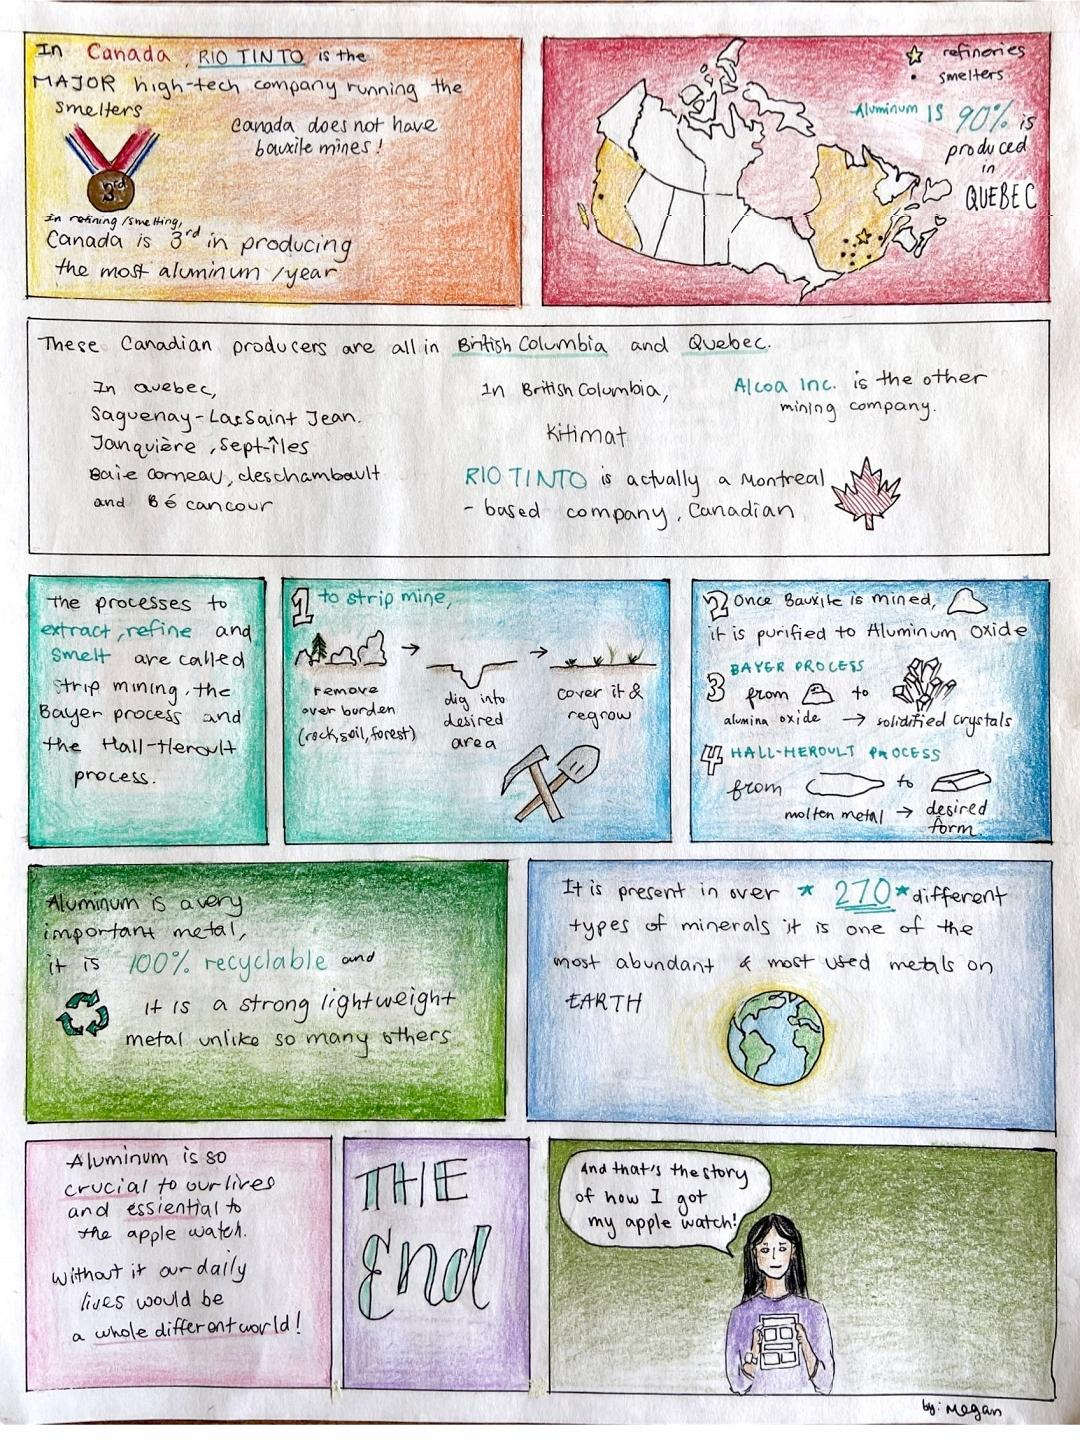 In Canada, RIO TINTO is the
MAJOR high-tech company running the
smelters
Canada does not have
bauxite mines!
3rd
In refining/smelting,
Canada is 3rd in producing
the most aluminum/year
refineries
smelters
Aluminum IS 90% is
produced
in
QUEBEC
These Canadian producers are all in British Columbia and Quebec.
In Quebec,
Saguenay-LacSaint Jean.
Jonquière, Sept-îles
Baie comeau, deschambault
and Bécancour
In British Columbia,
Kitimat
Alcoa Inc. is the other
mining company.
RIO TINTO is actually a Montreal
- based company, Canadian
The processes to
extract, refine and
smelt are called
strip mining, the
Bayer process and
the Hall-Heroult
process.
1 to strip mine,
remove
over burden
(rock, soil, forest)
dig into
desired
area
cover it &
regrow
2 Once Bauxite is mined,
it is purified to Aluminum Oxide
3 BAYER PROCESS
from to
alumina oxide → solidified crystals
4 HALL-HEROULT PROCESS
from to
molten metal → desired
form.
Aluminum is a very
important metal,
it is 100% recyclable and
it is a strong lightweight
metal unlike so many others
It is present in over *270* different
types of minerals it is one of the
most abundant & most used metals on
EARTH
Aluminum is so
crucial to our lives
and essiential to
the apple watch.
without it our daily
lives would be
a whole different world!
THE
End
And that's the story
of how I got
my apple watch!
by: Megan